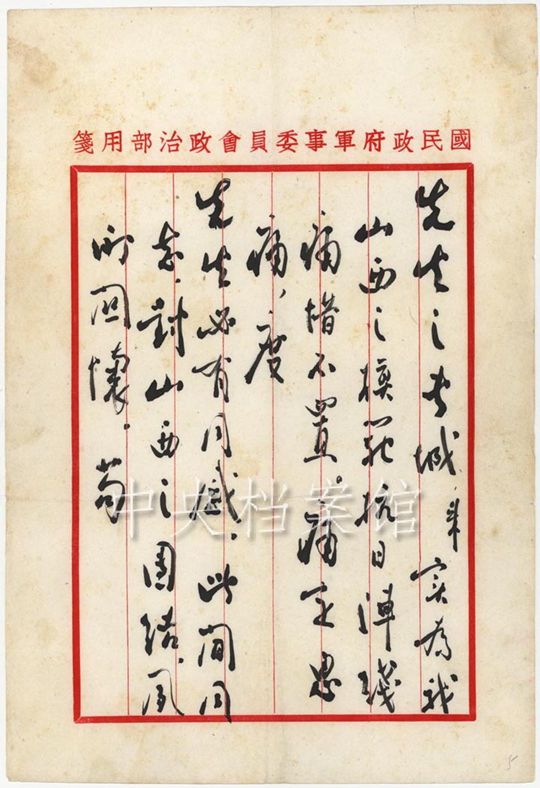 國民政府軍事委員會政治部用箋
先生之長城，實為我
山西之模範抗日陣綫
痛惜不置。痛定思
痛，度
先生必有同感。此間同
志，對山西之團結，夙
所關懷。苟
中央档案馆
5